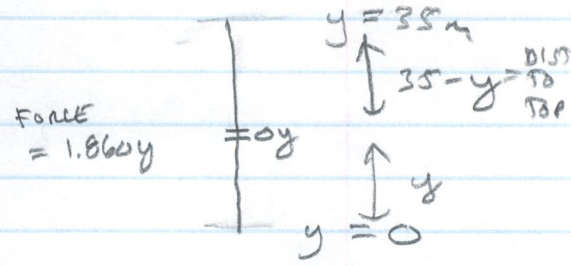 y = 35 m
35-y = DIST TO TOP
FORCE
= 1.86Δy
Δy
y
y = 0